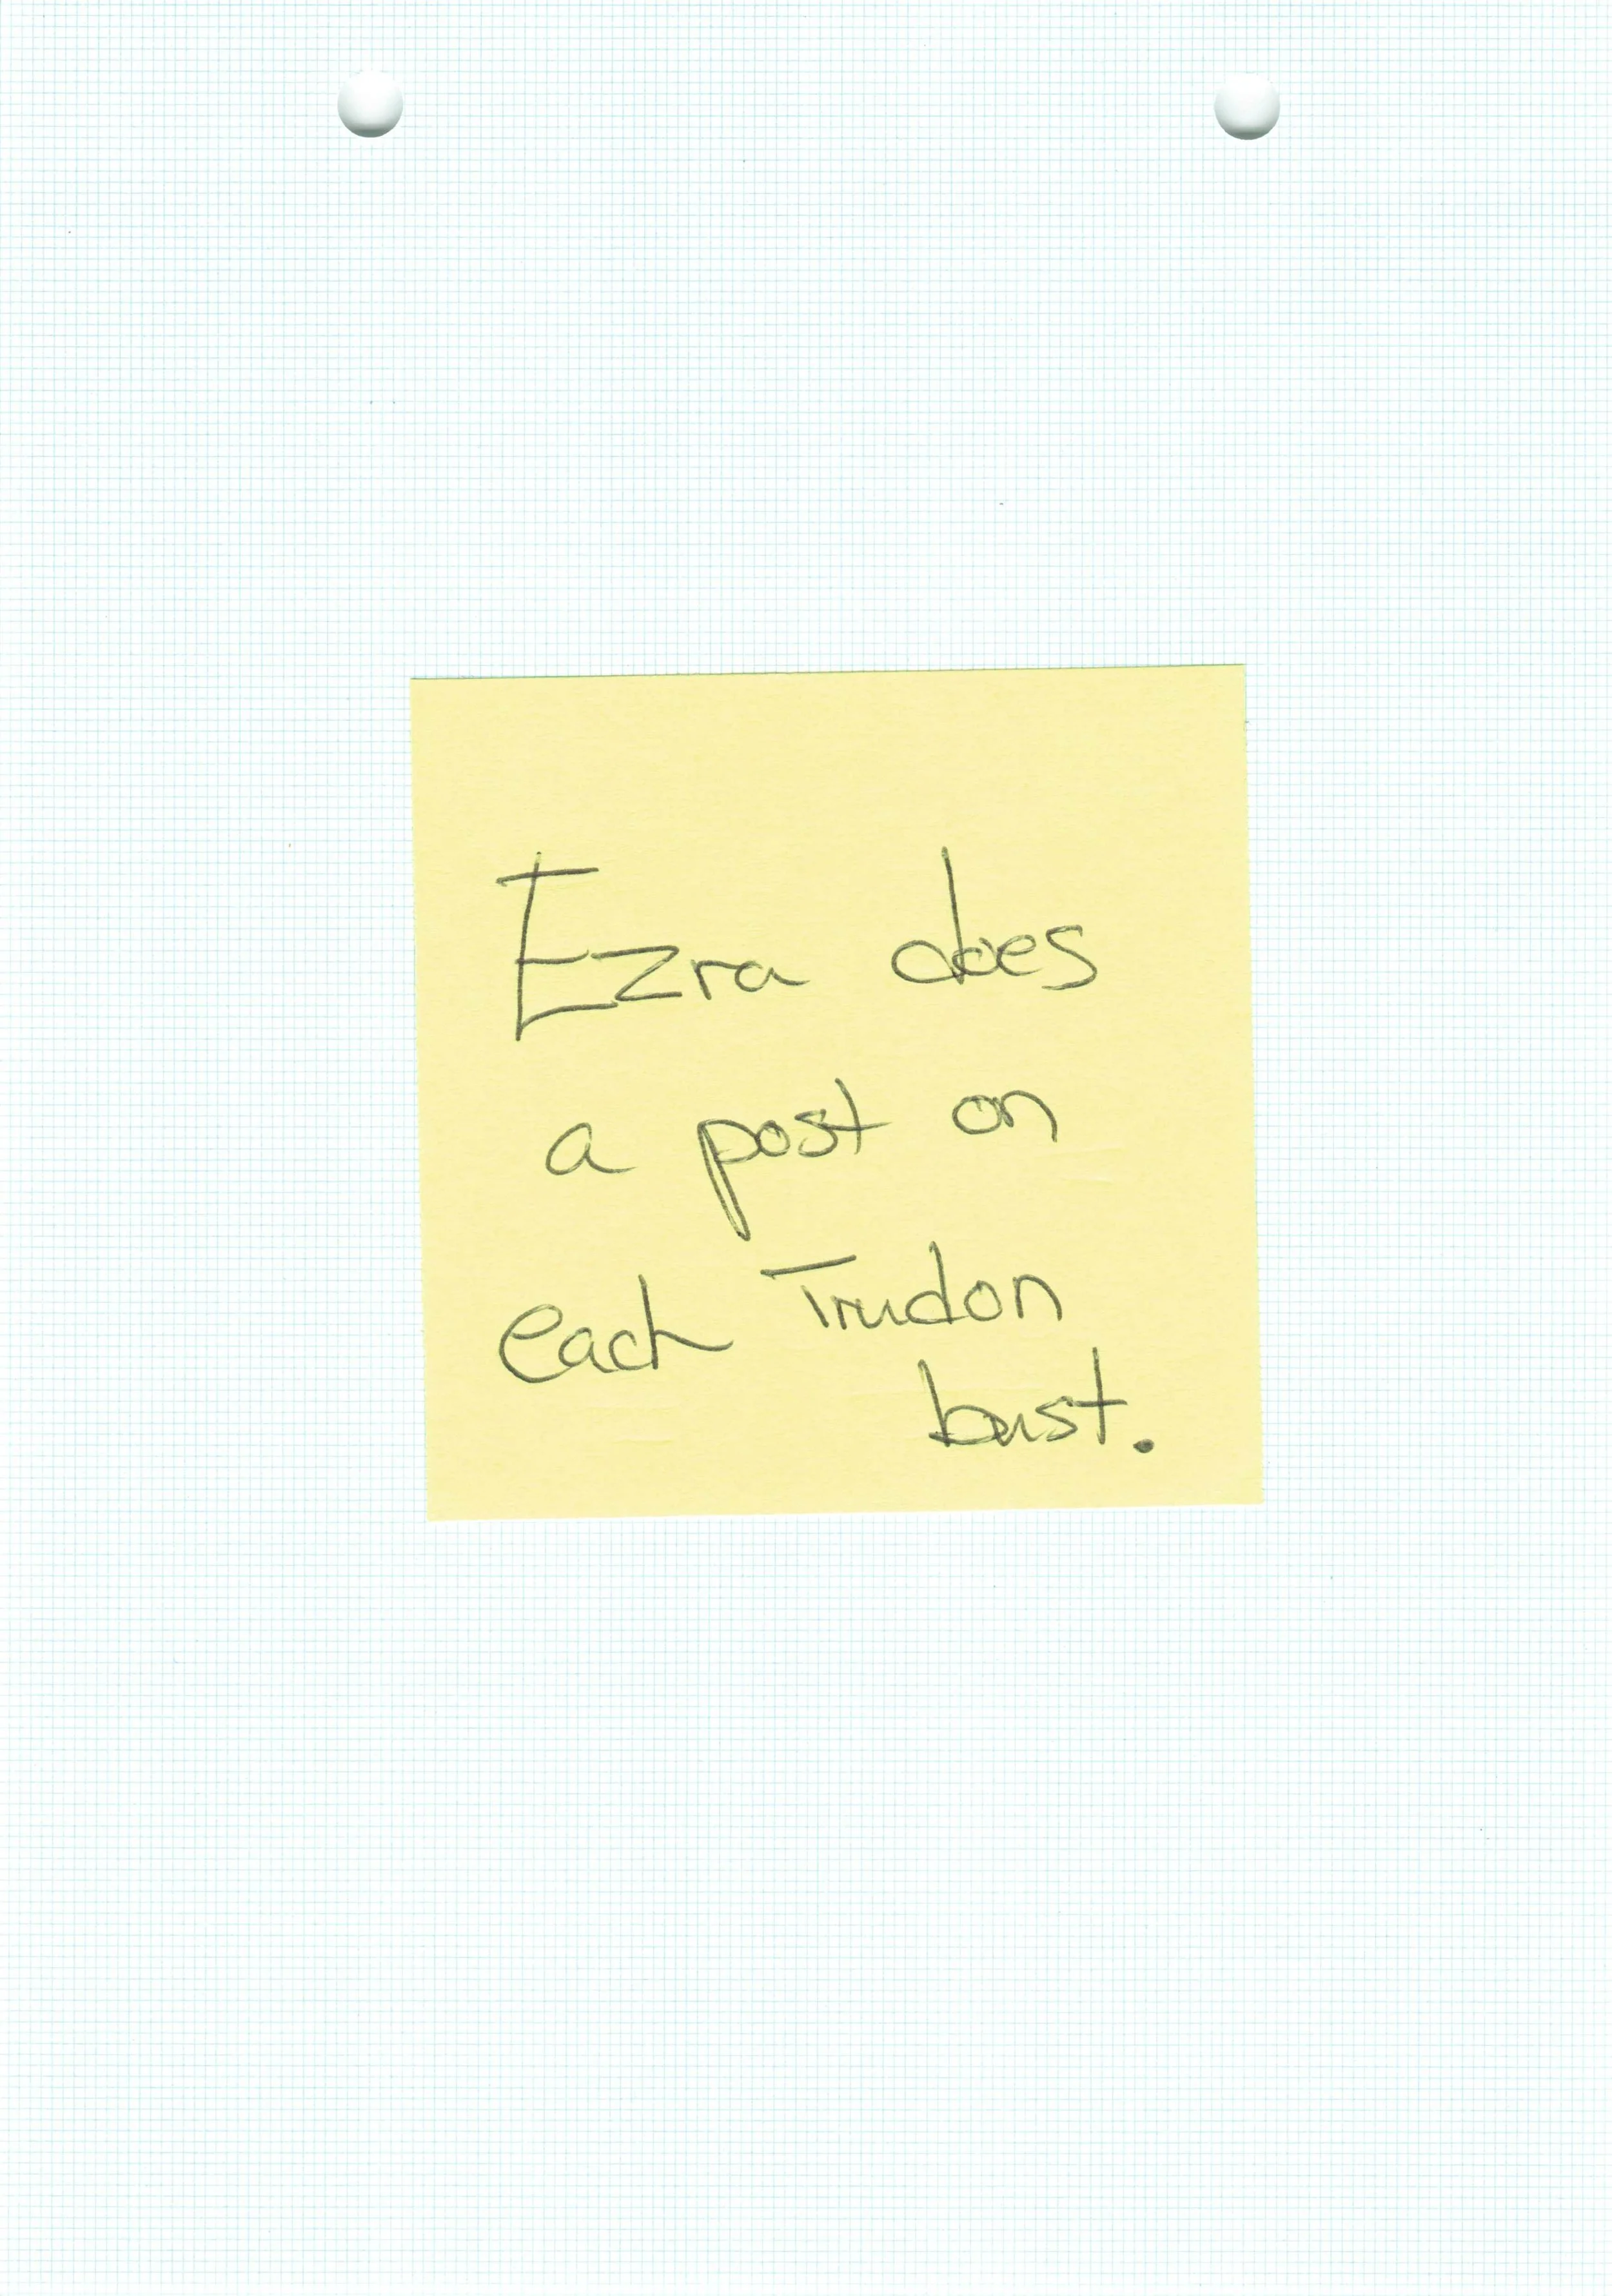 Ezra does
a post on
each Trudon
bust.